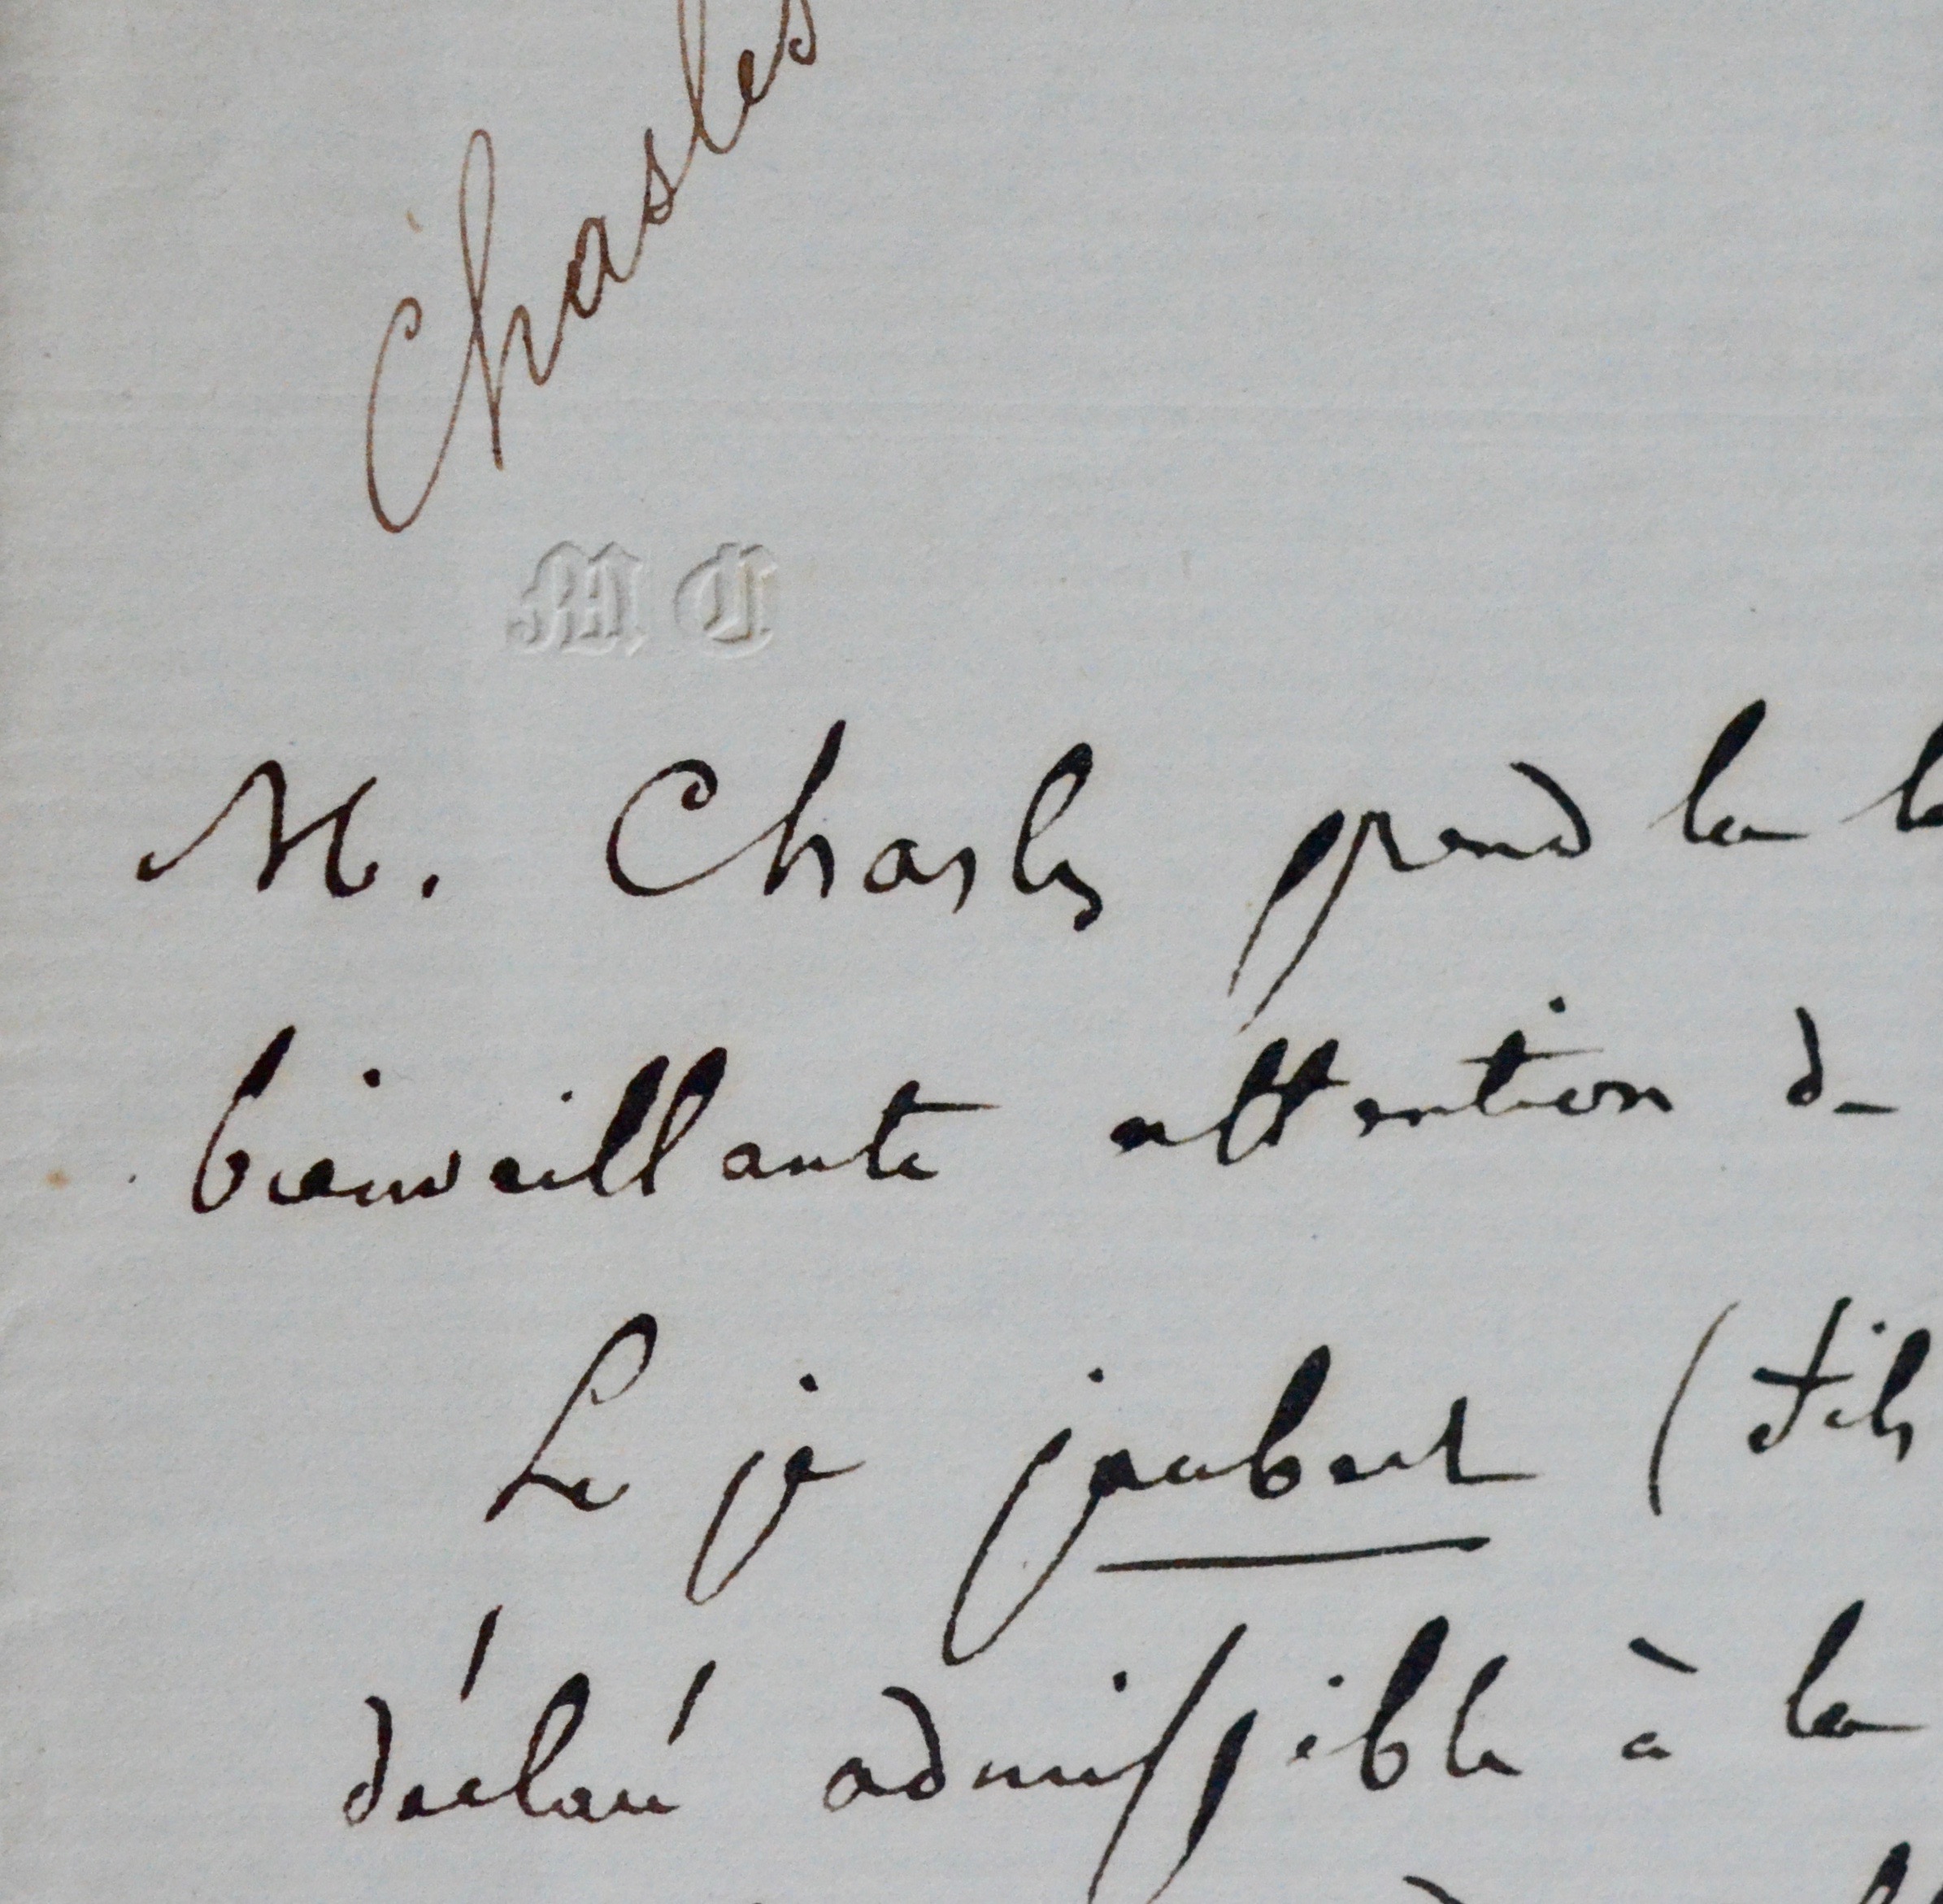 Chasles
M C
M. Chasles prend la
bienveillante attention de
Le je joubert (fils
déclaré admissible à la